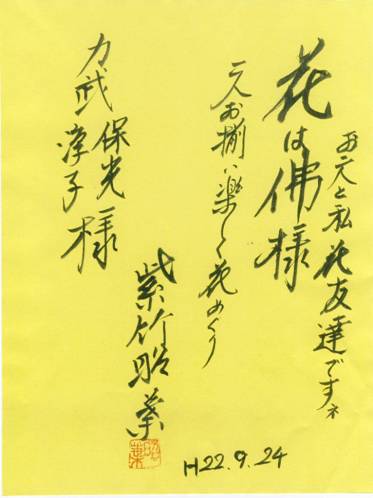 お二人と私花友達ですネ
花は佛様
二人お揃い楽しく花めぐり
紫竹昭葉
力武 保光
淳子 様
H22.9.24
昭葉